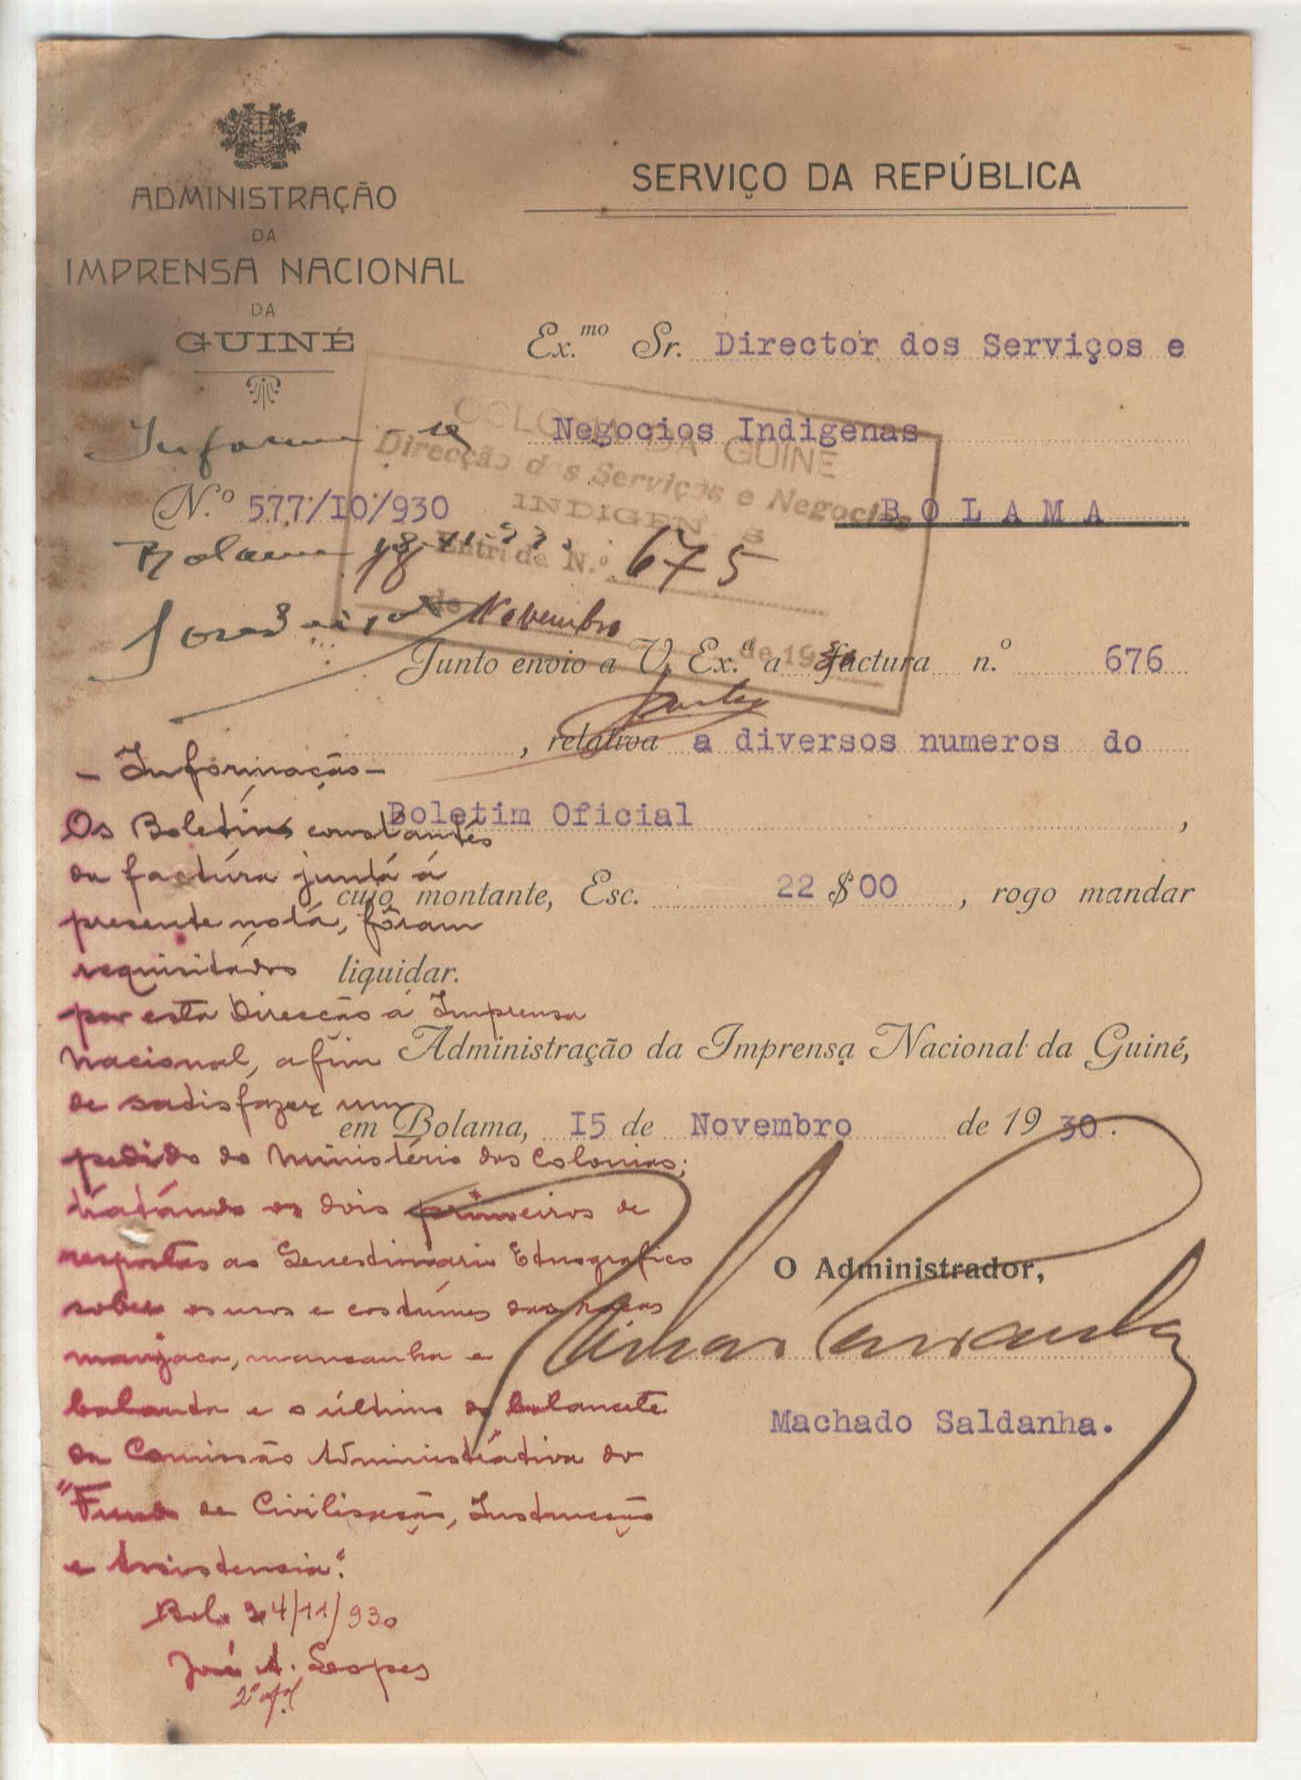 ADMINISTRAÇÃO
DA
IMPRENSA NACIONAL
DA
GUINÉ
SERVIÇO DA REPÚBLICA
Ex.mo Sr. Director dos Serviços e
Negocios Indigenas
BOLAMA
N.º 577/IO/930
COLONIA DA GUINÉ
Direcção dos Serviços e Negocios
INDIGEN S
Entr de N.º 675
de Novembro de 19
Informe
Bolama 18
Junto envio a V. Ex.ª a factura n.º 676
, relativa a diversos numeros do
Boletim Oficial ,
cujo montante, Esc. 22$00 , rogo mandar
liquidar.
Administração da Imprensa Nacional da Guiné,
em Bolama, I5 de Novembro de 1930.
O Administrador,
Machado Saldanha.
- Informação -
Os Boletins constantes
da factúra juntá á
presente notá, fôram
requisitados
por esta Direcção á Imprensa
Nacional, afim
de satisfazer um
pedido do Ministério das Colonias;
tratándo os dois primeiros de
respostas ao Questionario Etnografico
sobre os usos e costúmes das raças
manjaca, mansanha e
balanta e o último do balancete
da Comissão Administrátiva do
"Fundo de Civilisação, Instrucção
e Assistencia".
Bol. 24/11/930
José A. Lopes
2º of.